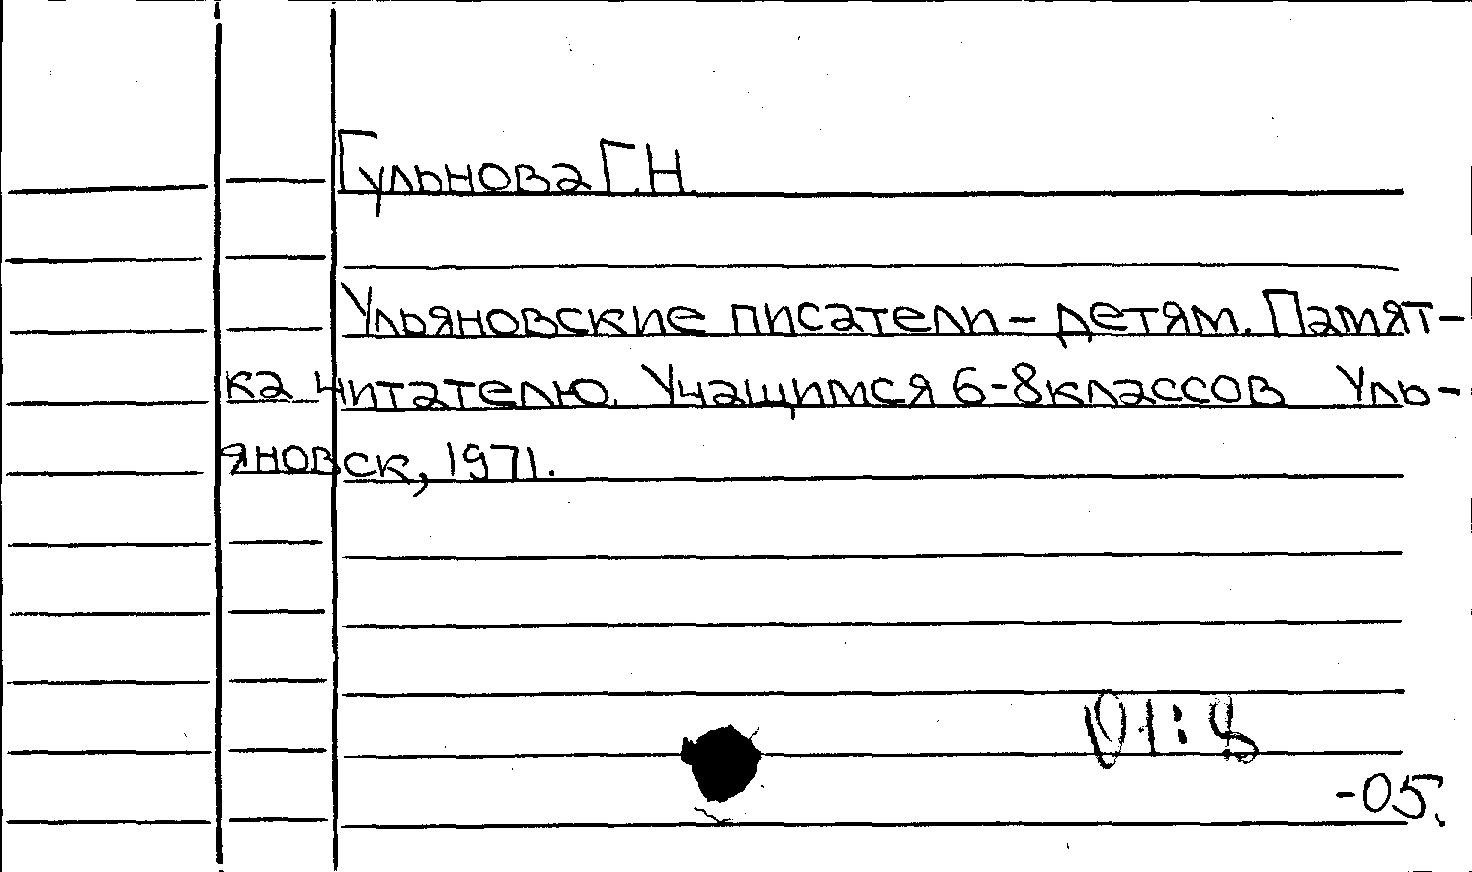 Гульнова Г.Н.
Ульяновские писатели – детям. Памят-
ка читателю. Учащимся 6-8 классов Уль-
яновск, 1971.
01:8
-05.